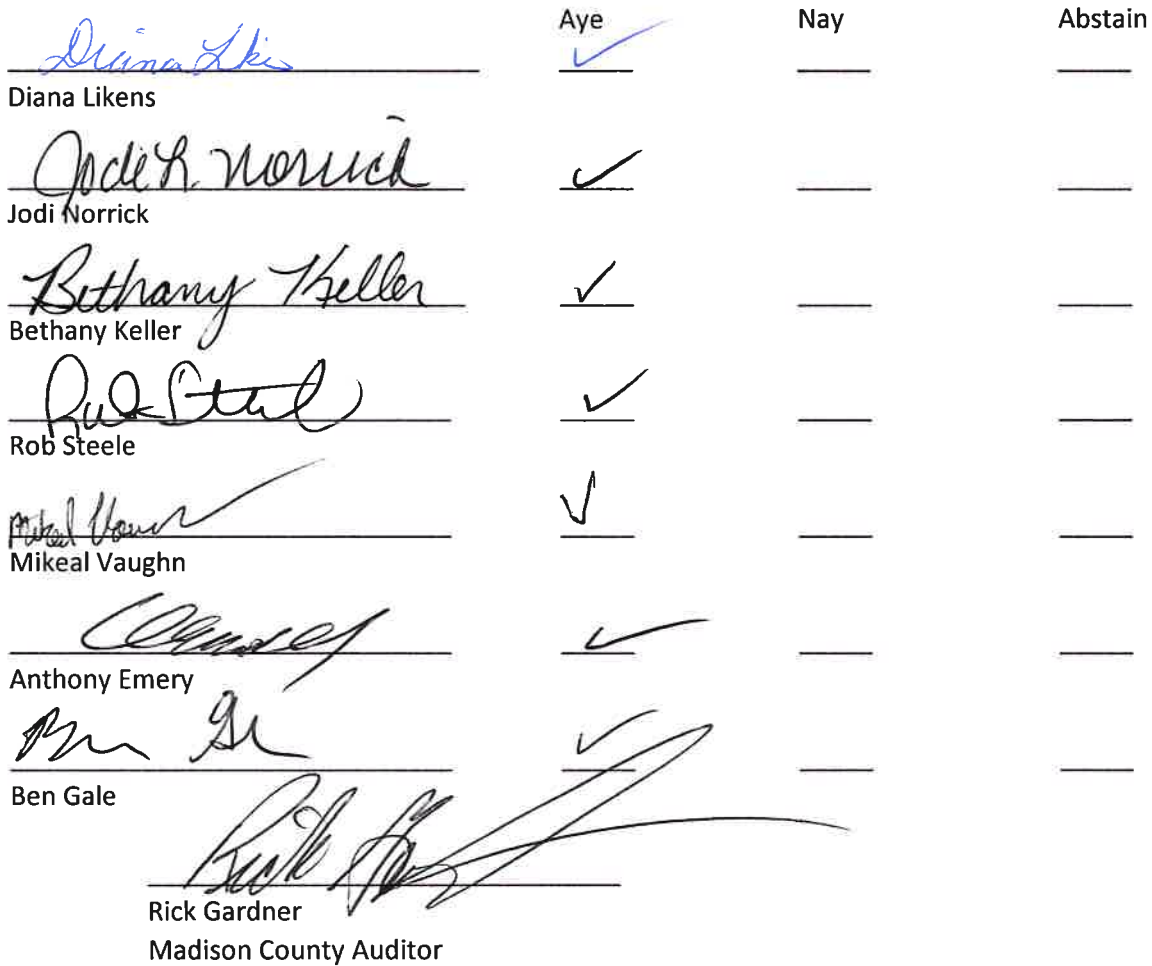 Aye Nay Abstain
Diana Likens ✓
Diana Likens
Jodi L. Norrick ✓
Jodi Norrick
Bethany Keller ✓
Bethany Keller
Rob Steele ✓
Rob Steele
Mikeal Vaughn ✓
Mikeal Vaughn
✓
Anthony Emery
Ben ✓
Ben Gale
Rick
Rick Gardner
Madison County Auditor